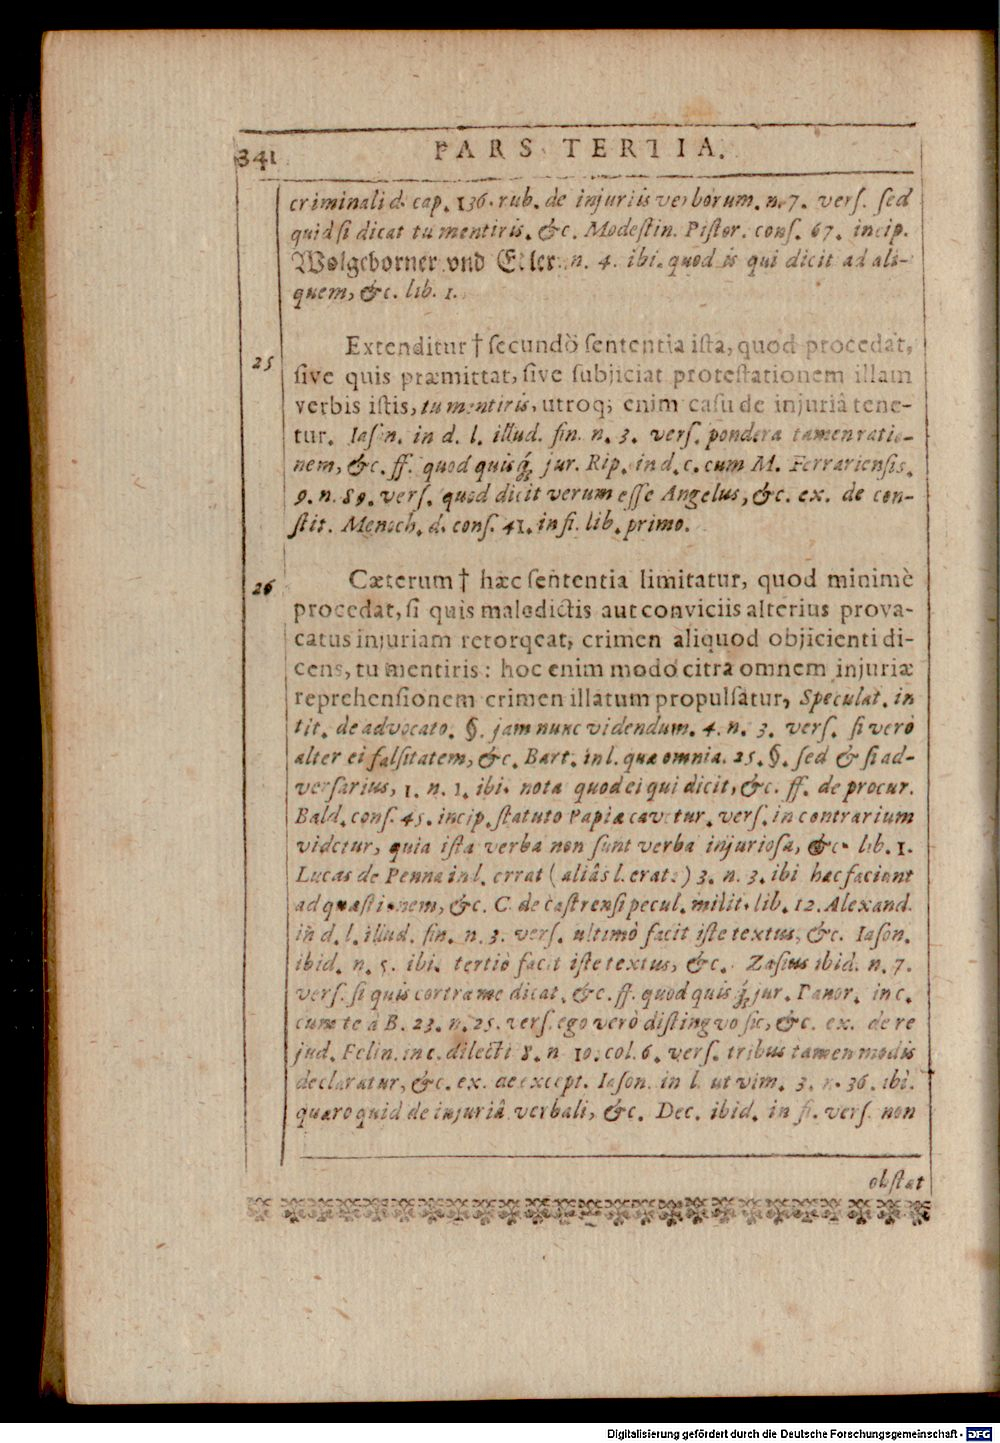 341
PARS TERTIA.
criminali d. cap. 136. rub. de injuriis verborum. n. 7. verſ. ſed
quid ſi dicat tu mentiris. &c. Modeſtin. Piſtor. conſ. 67. incip.
Wolgeborner vnd Edler. n. 4. ibi. quod is qui dicit ad ali-
quem, &c. lib. 1.
25
Extenditur † ſecundò ſententia iſta, quod procedat,
ſive quis præmittat, ſive ſubjiciat proteſtationem illam
verbis iſtis, tu mentiris, utroq; enim caſu de injuriâ tene-
tur. Iaſon. in d. l. illud. fin. n. 3. verſ. pondera tamen ratio-
nem, &c. ff. quod quisq́; jur. Rip. in d. c. cum M. Ferrarienſis.
9. n. 89. verſ. quod dicit verum eſſe Angelus, &c. ex. de con-
ſtit. Menoch. d. conſ. 41. in fi. lib. primo.
26
Cæterum † hæc ſententia limitatur, quod minimè
procedat, ſi quis maledictis aut conviciis alterius prova-
catus injuriam retorqeat, crimen aliquod objicienti di-
cens, tu mentiris: hoc enim modo citra omnem injuriæ
reprehenſionem crimen illatum propulſatur, Speculat. in
tit. de advocato. §. jam nunc videndum. 4. n. 3. verſ. ſi verò
alter ei falſitatem, &c. Bart. in l. quæ omnia. 25. §. ſed & ſi ad-
verſarius, 1. n. 1. ibi. nota quod ei qui dicit, &c. ff. de procur.
Bald. conſ. 45. incip. ſtatuto Papiæ cavetur. verſ. in contrarium
videtur, quia iſta verba non ſunt verba injurioſa, &c. lib. 1.
Lucas de Penna in l. errat (aliâs l. erat:) 3. n. 3. ibi hæc faciunt
ad quæſtionem, &c. C. de caſtrenſi pecul. milit. lib. 12. Alexand.
in d. l. illud. fin. n. 3. verſ. ultimò facit iſte textus, &c. Iaſon.
ibid. n. 5. ibi. tertiò facit iſte textus, &c. Zaſius ibid. n. 7.
verſ. ſi quis contra me dicat, &c. ff. quod quisq́; jur. Panor. in c.
cum te à B. 23. n. 25. verſ. ego verò diſtingvo ſic, &c. ex. de re
jud. Felin. in c. dilecti 8. n 10. col. 6. verſ. tribus tamen modis
declaratur, &c. ex. de except. Iaſon. in l. ut vim. 3. n. 36. ibi.
quæro quid de injuriâ verbali, &c. Dec. ibid. in fi. verſ. non
obſtat
Digitalisierung gefördert durch die Deutsche Forschungsgemeinschaft - DFG